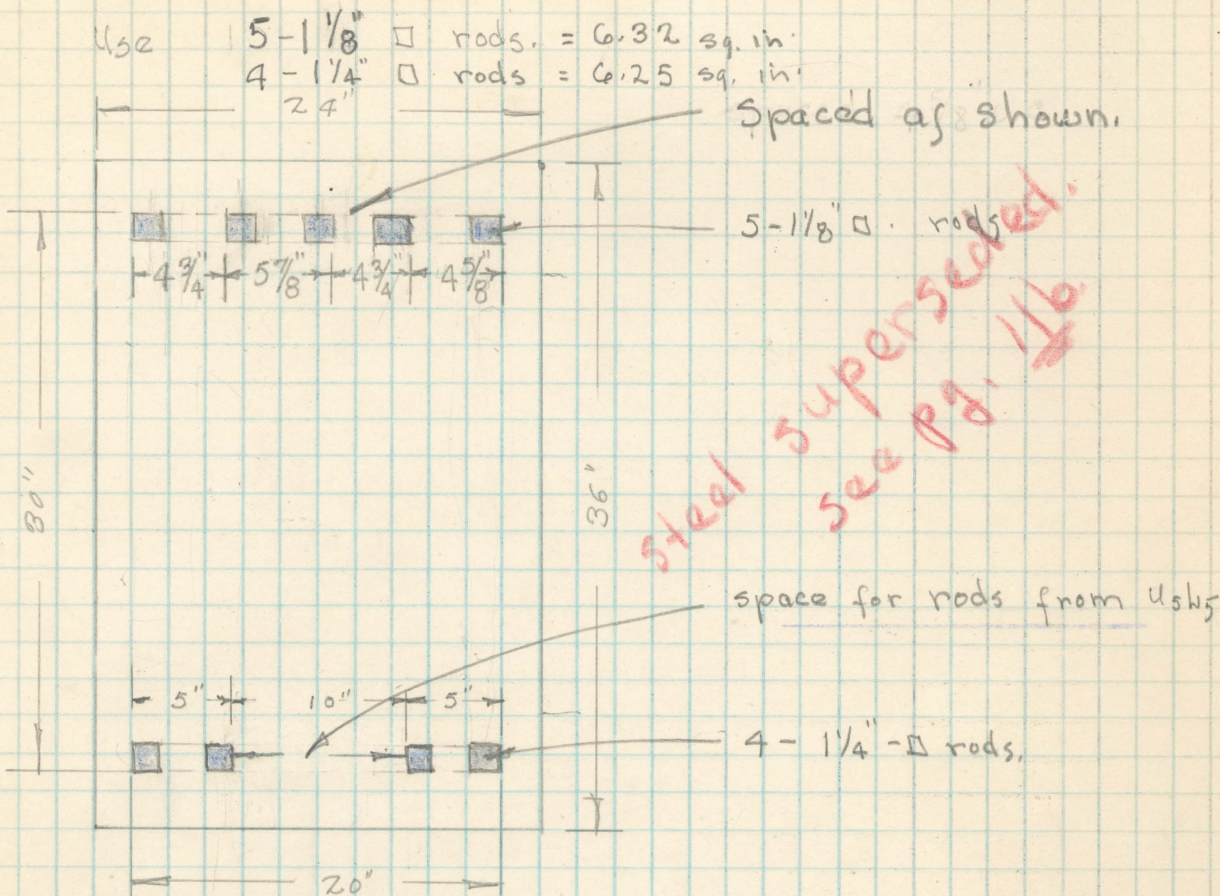 Use 5-1 1/8" □ rods. = 6.32 sq. in.
4-1 1/4" □ rods = 6.25 sq. in.
24"
Spaced as shown.
5-1 1/8" □. rods
4 3/4" 5 7/8" 4 3/4" 4 5/8"
steel superseded.
see pg. 116
30"
36"
space for rods from U5W5
5" 10" 5"
4 - 1 1/4" - □ rods.
20"